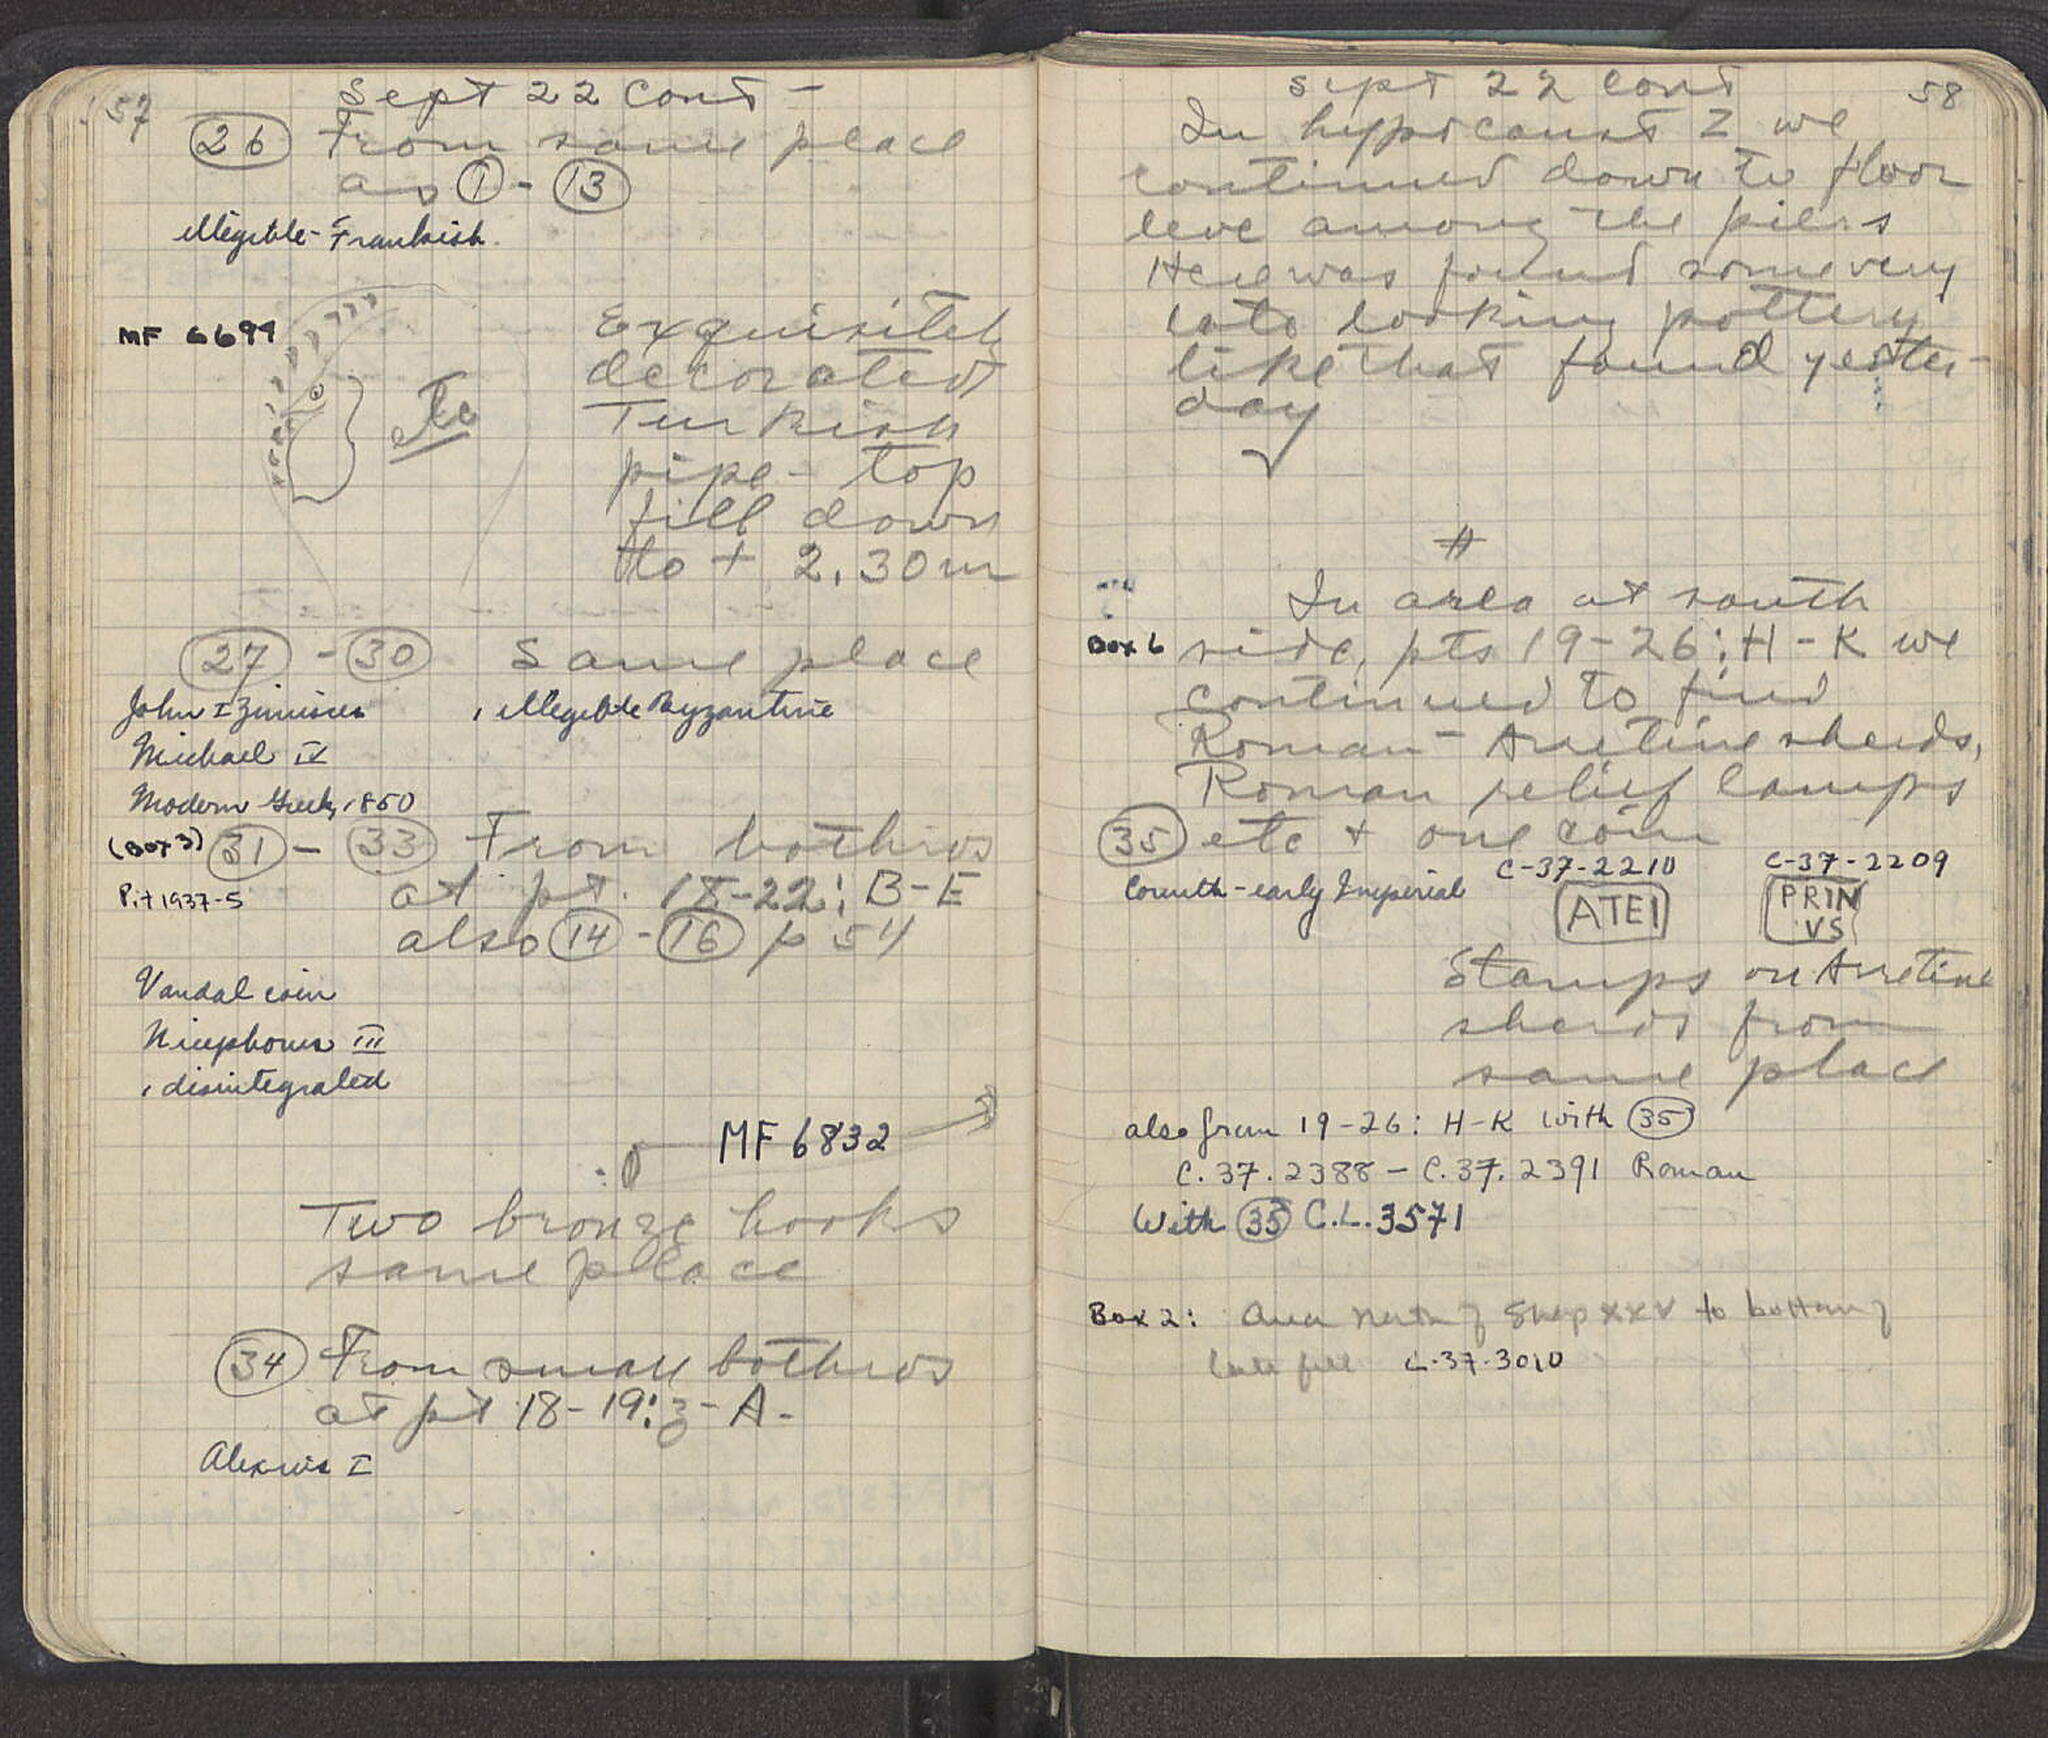 57
Sept 22 cont -
26 From same place
as 1 - 13
illegible - Frankish.
MF 6699
Exquisitely
decorated
Turkish
pipe - top
fill down
to + 2.30m
27 - 30 Same place
John I Zimisces , illegible Byzantine
Michael IV
Modern Greek, 1850
(Box 3) 31 - 33 From bothros
Pit 1937-5 at pt. 18-22: B-E
also 14 - 16 p 54
Vandal coin
Nicephorus III
1 disintegrated
MF 6832
Two bronze hooks
same place
34 From small bothros
at pt 18-19: - A-
Alexius I
58
Sept 22 cont
In hypocaust I we
continued down to floor
leve among the piers
Here was found some very
late looking pottery
like that found yester-
day
#
In area at south
Box 6 side, pts 19-26: H-K we
continued to find
Roman - Arretine sherds,
Roman relief lamps
35 etc + one coin
Corinth - early Imperial
C-37-2210 C-37-2209
ATEI PRIN
VS
Stamps on Arretine
sherds from
same place
also from 19-26: H-K with 35
C.37.2388 - C.37.2391 Roman
With 35 C.L.3571
Box 2: Area North of Shop XXV to bottom of
late fill C-37-3010